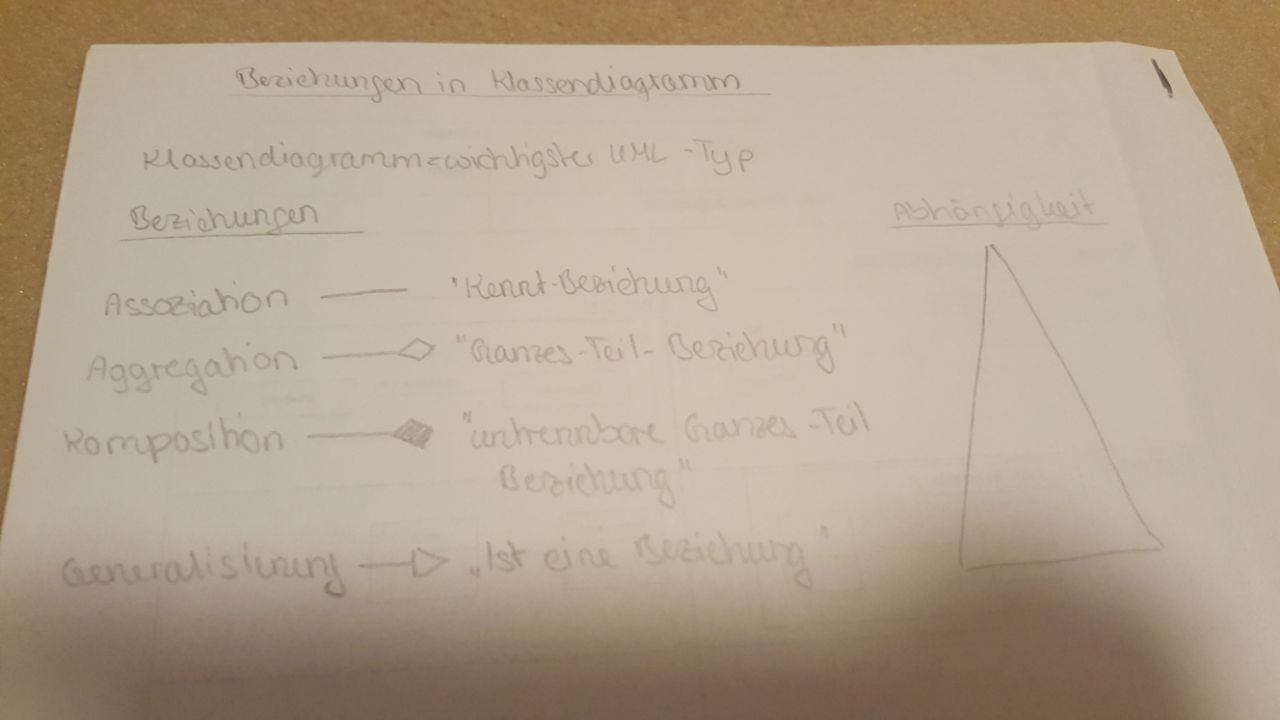 Beziehungen in Klassendiagramm
Klassendiagramm=wichtigster UML -Typ
Beziehungen
Abhängigkeit
Assoziation "Kennt-Beziehung"
Aggregation "Ganzes-Teil-Beziehung"
Komposition "untrennbare Ganzes-Teil
Beziehung"
Generalisierung „Ist eine Beziehung"